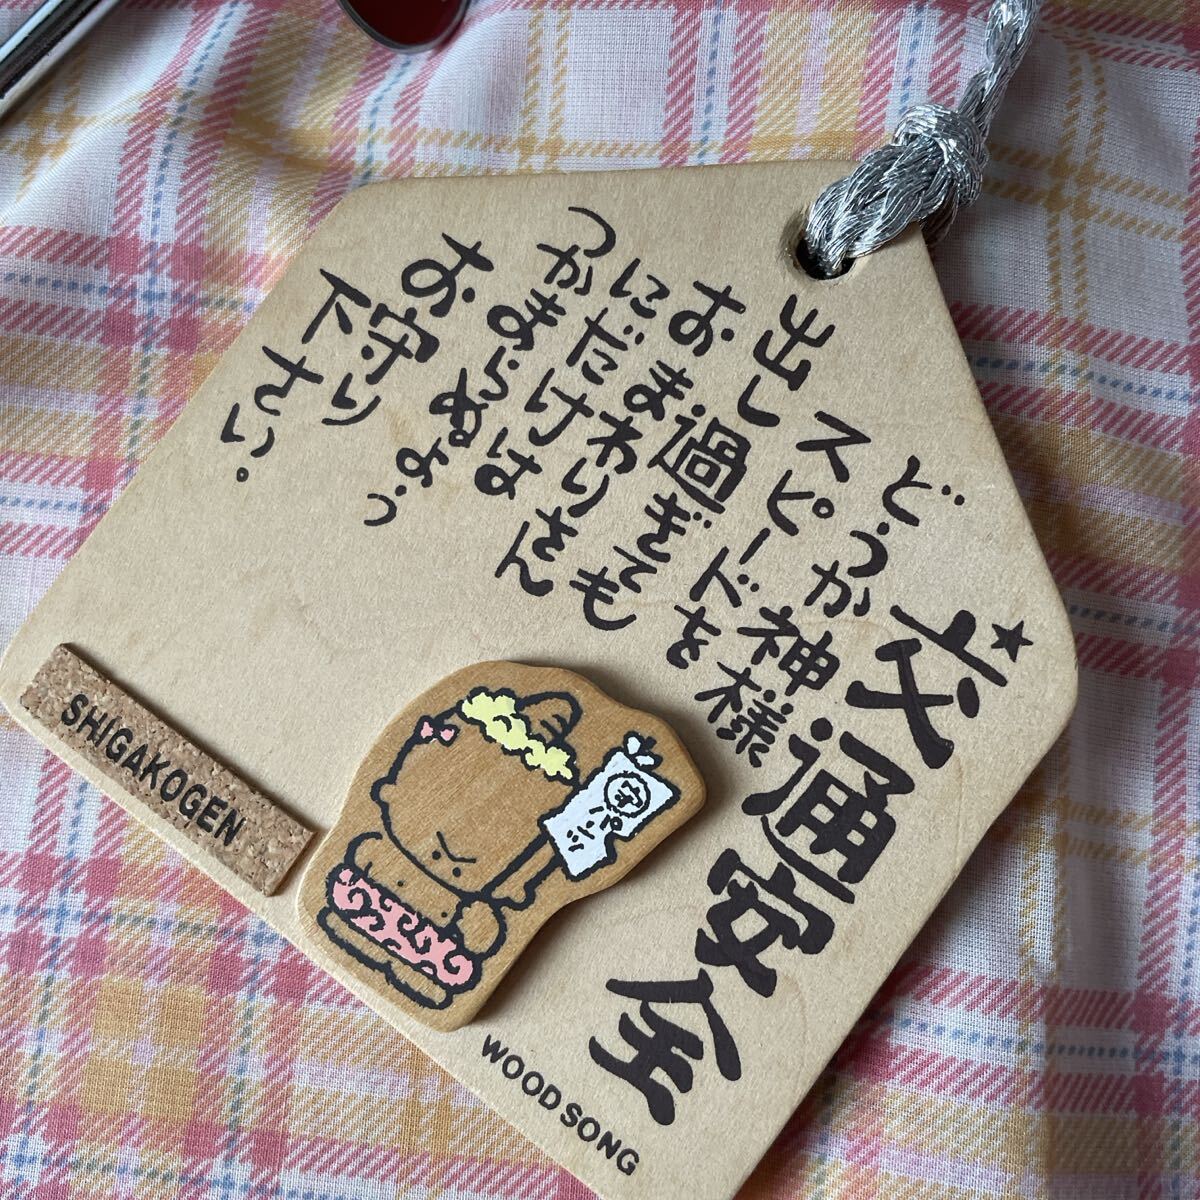 交通安全
どうか神様
スピードを
出し過ぎても
おまわりさん
にだけは
つかまらぬよう
お守り
下さい。
SHIGAKOGEN
WOOD SONG